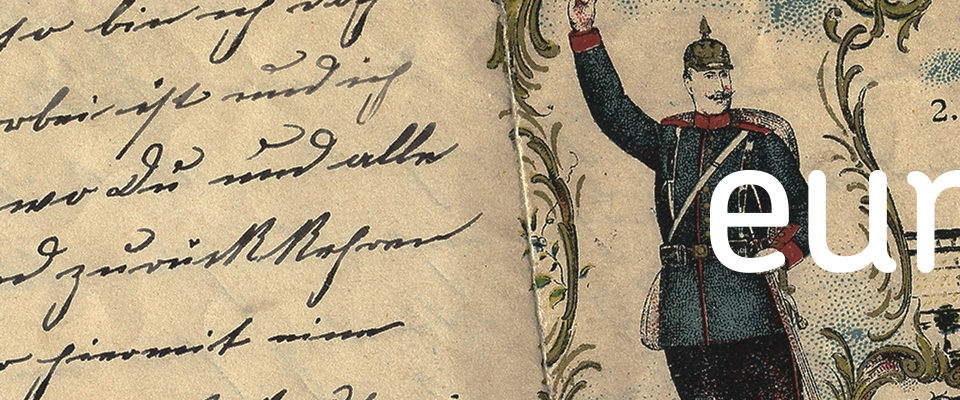 so bin ich doch
rbei ist und ich
wo Du und alle
nd zurückkehren
hiermit eine
2.
eur